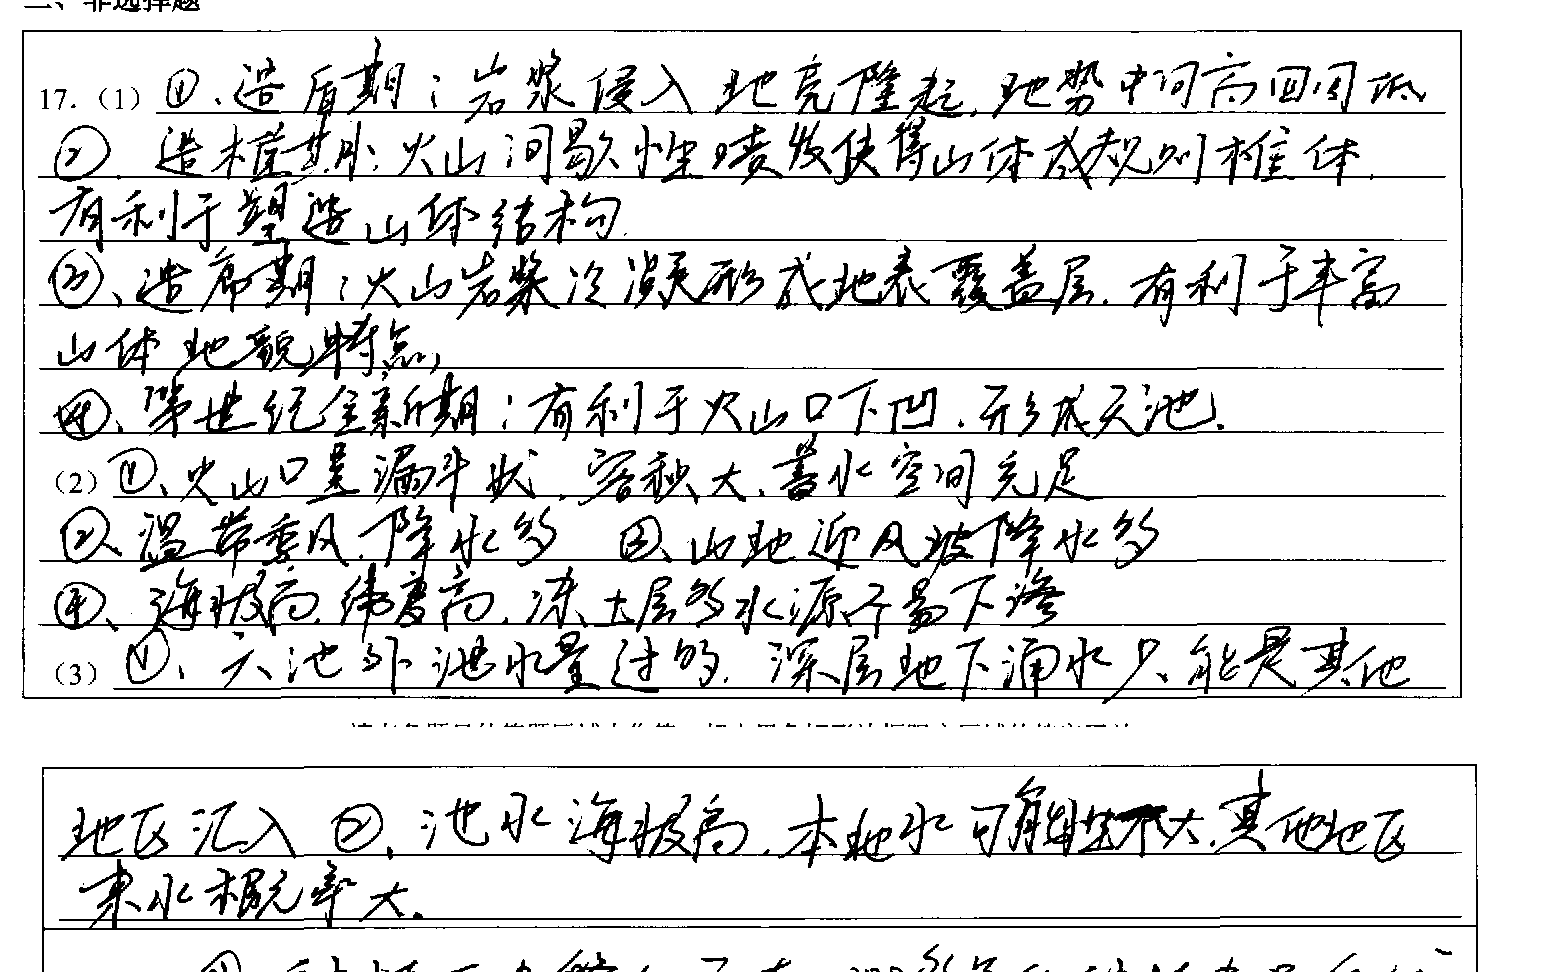 二、非选择题
17.（1）①、造盾期：岩浆侵入地壳隆起，地势中间高四周低
②、造椎期：火山间歇性喷发使得山体成规则椎体，
有利于塑造山体结构.
③、造席期：火山岩浆冷凝形成地表覆盖层，有利于丰富
山体地貌特点，
④、第世纪全新期：有利于火山口下凹，形成天池.
（2）①、火山口呈漏斗状，容积大，蓄水空间充足
②、温带季风，降水多 ③、山地迎风坡降水多
④、海拔高，纬度高，冻土层多水源不易下渗
（3）①、天池外泄水量过多，深层地下涌水只能是其他
地区汇入 ②、池水海拔高，本地水可能性不大，其他地区
来水概率大.